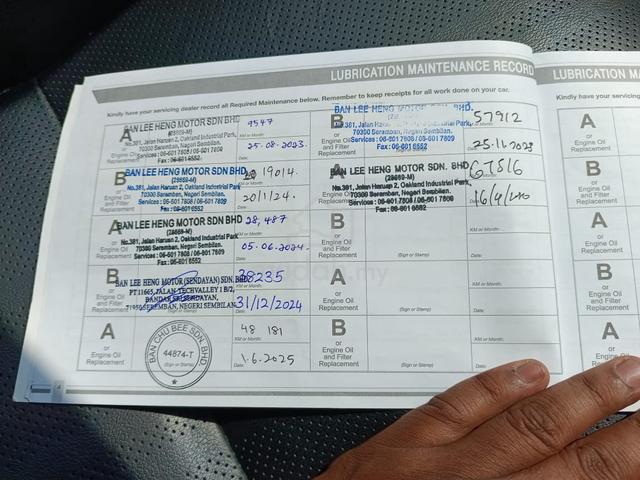 LUBRICATION MAINTENANCE RECORD
LUBRICATION MA
Kindly have your servicing dealer record all Required Maintenance below. Remember to keep receipts for all work done on your car.
Kindly have your servicing
A
or
Engine Oil
Replacement
BAN LEE HENG MOTOR SDN BHD
(28669-M)
No.381, Jalan Haruan 2, Oakland Industrial Park,
70300 Seremban, Negeri Sembilan.
Services : 06-6017808 / 06-6017809
Fax : 06-6016552
9547
KM or Month:
25.08.2023.
Date:
B
or
Engine Oil
and Filter
Replacement
BAN LEE HENG MOTOR SDN BHD
(28669-M)
No.381, Jalan Haruan 2, Oakland Industrial Park
70300 Seremban, Negeri Sembilan.
Services : 06-6017808 / 06-6017809
Fax : 06-6016552
19014
20/1/24.
Date:
A
or
Engine Oil
Replacement
BAN LEE HENG MOTOR SDN BHD
(28669-M)
No.381, Jalan Haruan 2, Oakland Industrial Park,
70300 Seremban, Negeri Sembilan.
Services : 06-6017808 / 06-6017809
Fax : 06-6016552
28,487
KM or Month:
05.06.2024.
Date:
B
or
Engine Oil
and Filter
Replacement
BAN LEE HENG MOTOR (SENDAYAN) SDN. BHD
PT11665, JALAN TECHVALLEY 1B/2,
BANDAR SRI SENDAYAN,
71950 SEREMBAN, NEGERI SEMBILAN
38235
31/12/2024
A
or
Engine Oil
Replacement
BAN CHU BEE SDN. BHD.
44874-T
(Sign or Stamp)
48 181
KM or Month:
1.6.2025
Date:
B
or
Engine Oil
and Filter
Replacement
BAN LEE HENG MOTOR SDN BHD.
No.381, Jalan Haruan 2, Oakland Industrial Park,
70300 Seremban, Negeri Sembilan.
Services : 06-6017808 / 06-6017809
Fax : 06-6016552
57912
25.11.2025
Date:
A
or
Engine Oil
Replacement
BAN LEE HENG MOTOR SDN BHD
(28669-M)
No.381, Jalan Haruan 2, Oakland Industrial Park,
70300 Seremban, Negeri Sembilan.
Services : 06-6017808 / 06-6017809
Fax : 06-6016552
67816
Date:
B
or
Engine Oil
and Filter
Replacement
(Sign or Stamp)
KM or Month:
Date:
A
or
Engine Oil
Replacement
(Sign or Stamp)
KM or Month:
Date:
B
or
Engine Oil
and Filter
Replacement
(Sign or Stamp)
KM or Month:
Date:
A
or
Engine Oil
Replacement
B
or
Engine Oil
and Filter
Replacement
A
or
Engine Oil
Replacement
B
or
Engine Oil
and Filter
Replacement
A
or
Engine Oil
Replacement